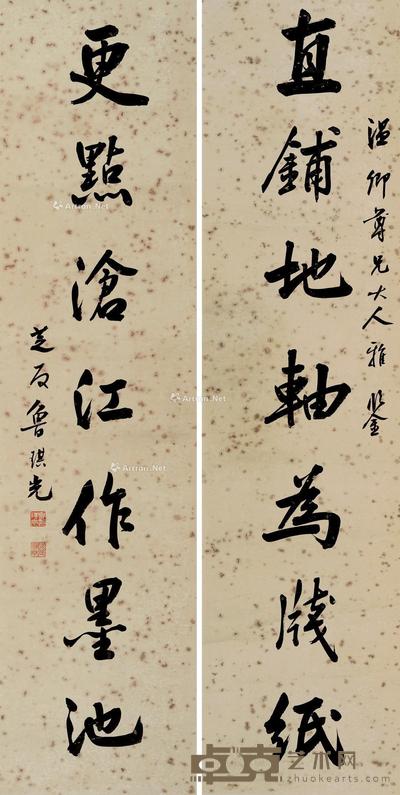 溫卿尊兄大人雅鑒
直鋪地軸為牋紙
更點滄江作墨池
芝友魯琪光
Artron.Net
Artron.Net
Artron.Net
Artron.Net
卓克艺术网
zhuokearts.com